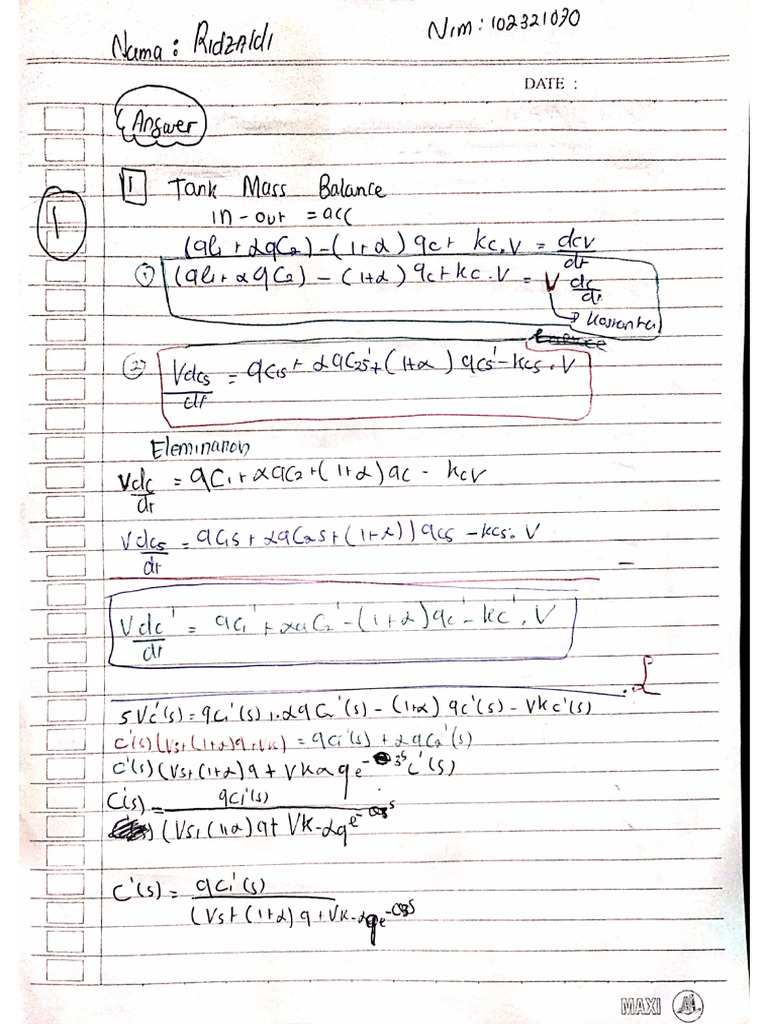 Nama : RIDZAldi
Nim : 102321030
DATE :
Answer
1
1 Tank Mass Balance
in - out = acc
(qC₁ + αqC₂) - (1+α) qc + kc.V = dcv/dt
① (qC₁ + αqC₂) - (1+α) qc + kc.V = V dc/dt
→ konstanta
② Vdcs/dt = qC₁s + αqC₂s' + (1+α) qcs' - kcs . V
Elemination
Vdc/dt = qC₁ + αqC₂ + (1+α) qc - kcV
Vdcs/dt = qC₁s + αqC₂s + (1+α)) qcs - kcs . V
-
Vdc'/dt = qC₁' + αqC₂' - (1+α) qc' - kc' . V
. ℒ
sVc'(s) = qC₁'(s) + αqC₂'(s) - (1+α) qc'(s) - Vkc'(s)
c'(s) (Vs + (1+α)q + Vk) = qC₁'(s) + αqC₂'(s)
c'(s) (Vs + (1+α) q + Vkαqe^- 3s c'(s)
C'(s) = qC₁'(s) / (Vs, (1+α) q + Vk - αqe^-
C'(s) = qC₁'(s) / (Vs + (1+α) q + Vk - αqe^-
MAXI